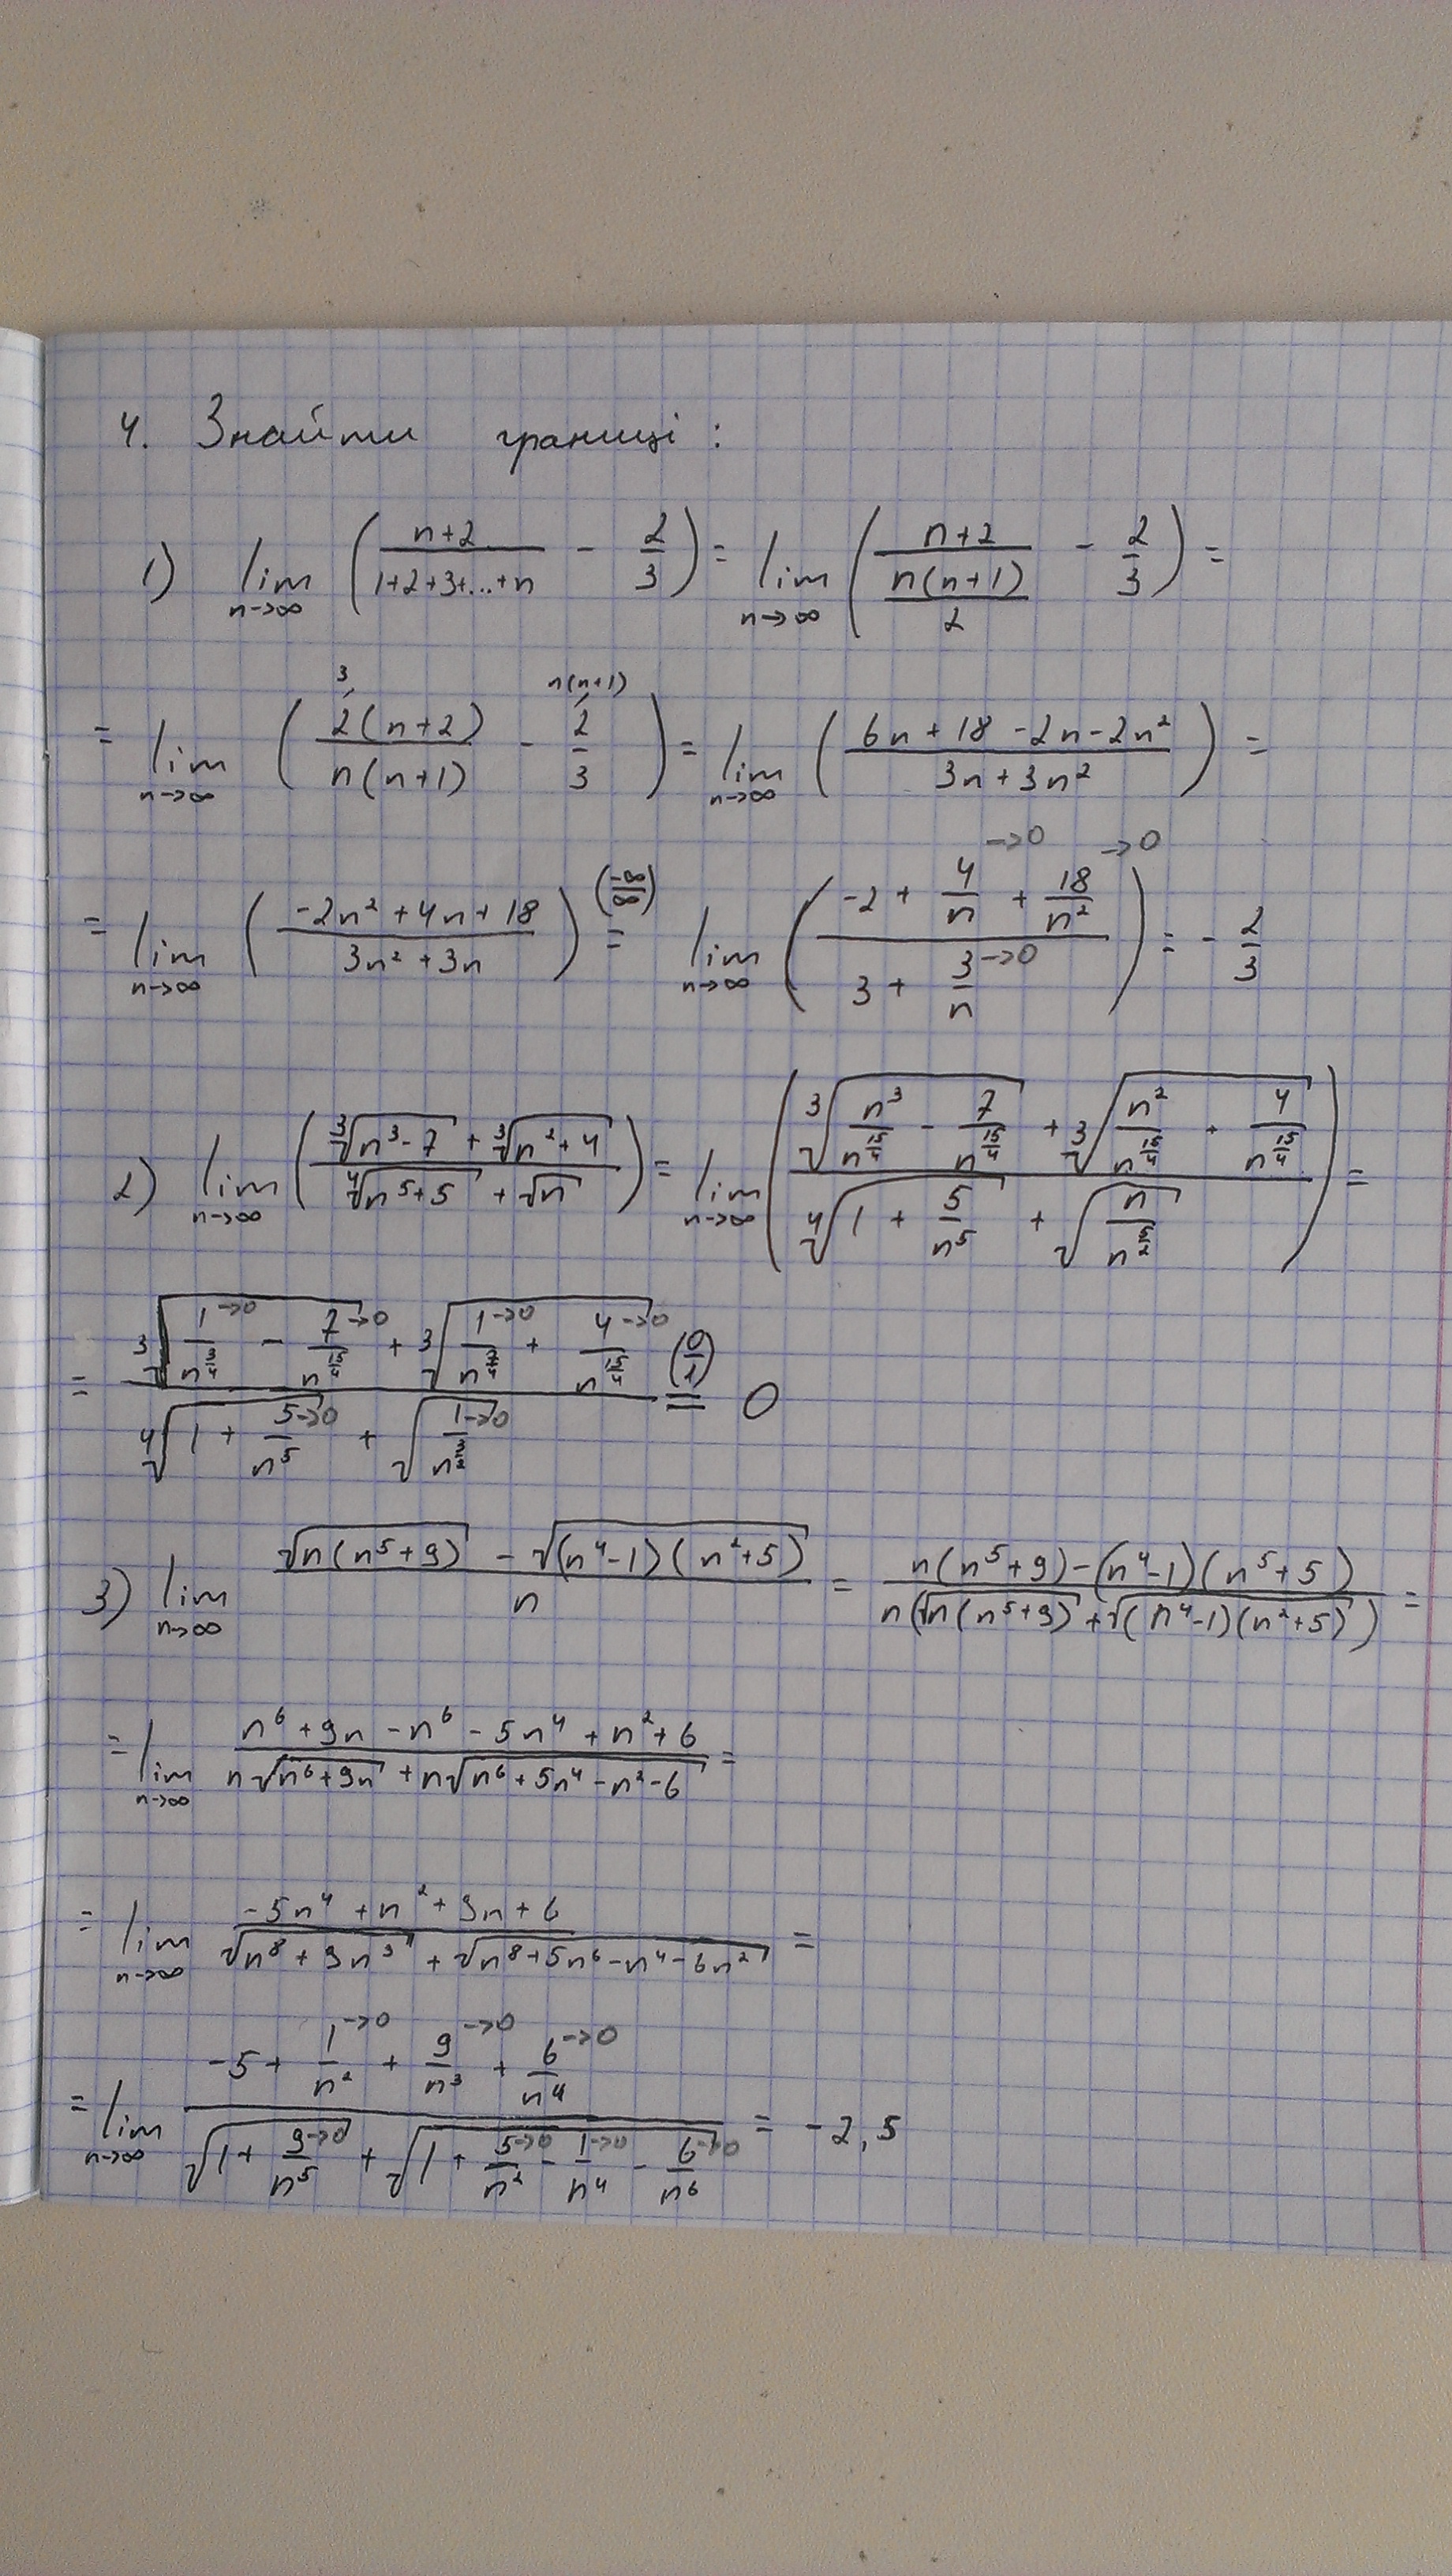 4. Знайти границі:
1) lim n→∞ ( (n+2)/(1+2+3+...+n) - 2/3 ) = lim n→∞ ( (n+2)/(n(n+1)/2) - 2/3 ) =
= lim n→∞ ( 2(n+2)/(n(n+1)) ³ - 2/3 ⁿ⁽ⁿ⁺¹⁾ ) = lim n→∞ ( (6n+18-2n-2n²)/(3n+3n²) ) =
= lim n→∞ ( (-2n²+4n+18)/(3n²+3n) ) (-∞/∞) = lim n→∞ ( (-2 + 4/n →0 + 18/n² →0)/(3 + 3/n →0) ) = - 2/3
2) lim n→∞ ( (∛(n³-7) + ∛(n²+4))/(∜(n⁵+5) + √n) ) = lim n→∞ ( (∛(n³/n^(15/4) - 7/n^(15/4)) + ∛(n²/n^(15/4) + 4/n^(15/4)))/(∜(1 + 5/n⁵) + √(n/n^(5/2))) ) =
= (∛(1/n^(3/4) →0 - 7/n^(15/4) →0) + ∛(1/n^(7/4) →0 + 4/n^(15/4) →0))/(∜(1 + 5/n⁵ →0) + √(1/n^(3/2) →0)) (0/1) = 0
3) lim n→∞ (√(n(n⁵+9)) - √((n⁴-1)(n²+5)))/n = (n(n⁵+9)-(n⁴-1)(n⁵+5))/(n(√(n(n⁵+9)) + √((n⁴-1)(n²+5)))) =
= lim n→∞ (n⁶+9n-n⁶-5n⁴+n²+6)/(n√(n⁶+9n) + n√(n⁶+5n⁴-n²-6)) =
= lim n→∞ (-5n⁴+n²+9n+6)/(√(n⁸+9n³) + √(n⁸+5n⁶-n⁴-6n²)) =
= lim n→∞ (-5 + 1/n² →0 + 9/n³ →0 + 6/n⁴ →0)/(√(1 + 9/n⁵ →0) + √(1 + 5/n² →0 - 1/n⁴ →0 - 6/n⁶ →0)) = -2,5